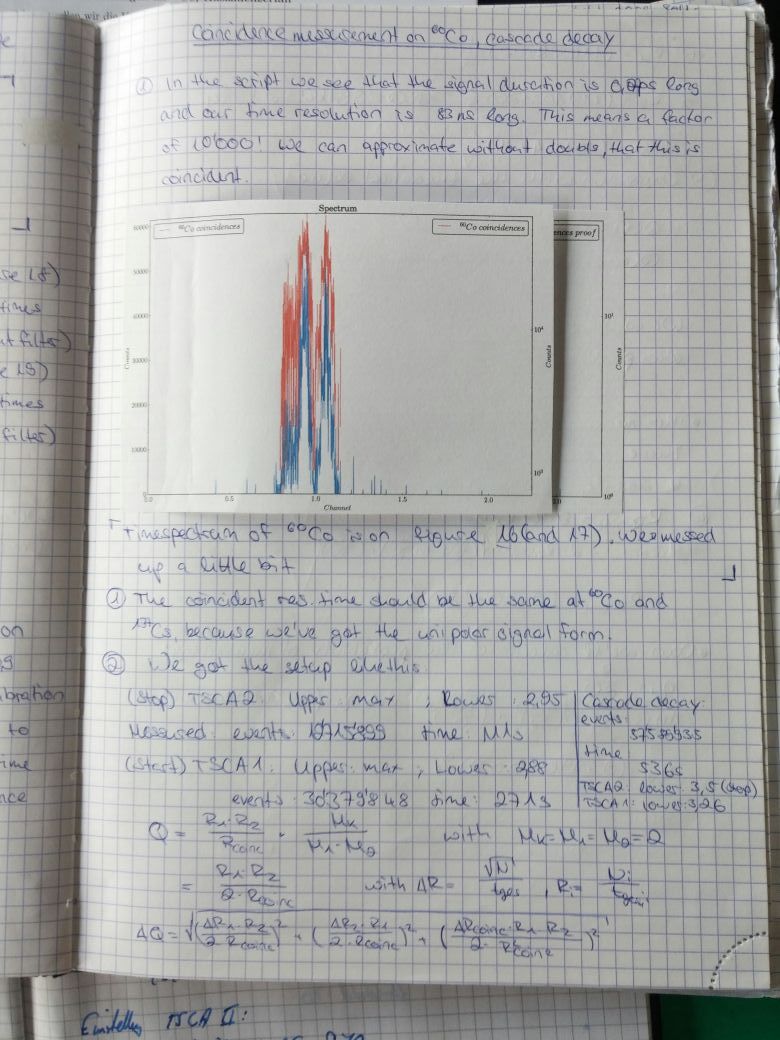 Coincidence measurement on ⁶⁰Co, cascade decay
① In the script we see that the signal duration is 0,8ps long
and our time resolution is 83 ns long. This means a factor
of 10'000! We can approximate without doubts, that this is
coincident.
Spectrum
⁶⁰Co coincidences
⁶⁰Co coincidences
ences proof
60000
50000
40000
30000
20000
10000
Counts
10⁴
10³
Counts
10¹
10⁰
Counts
0.0 0.5 1.0 1.5 2.0
Channel
Timespectrum of ⁶⁰Co is on figure 16 (and 17). We messed
up a little bit
① The coincident res. time should be the same at ⁶⁰Co and
¹³⁷Cs, because we've got the unipolar signal form.
② We got the setup like this
(Stop) TSCA2: Upper: max ; Lower: 2,95
Measured: events: time:
(Start) TSCA1: Upper: max ; Lower: 2,88
events: 30'379'848 time: 271s
Cascade decay:
events:
time
536s
TSCA2: lower: 3,5 (stop)
TSCA1: lower: 3,26
Q = R₁·R₂/R_coinc · M_K/M₁·M₂ with M_K=M₁=M₂=2
= R₁·R₂/2·R_coinc with ΔR = √N/t_ges , R_i = N_i/t_ges,i
ΔQ = √((ΔR₁·R₂/2·R_coinc)² + (ΔR₂·R₁/2·R_coinc)² + (ΔR_coinc·R₁·R₂/2·R²_coinc)²)
se 18)
times
t filter)
e 19)
times
filter)
on
bration
to
ime
nce
TSCA II: